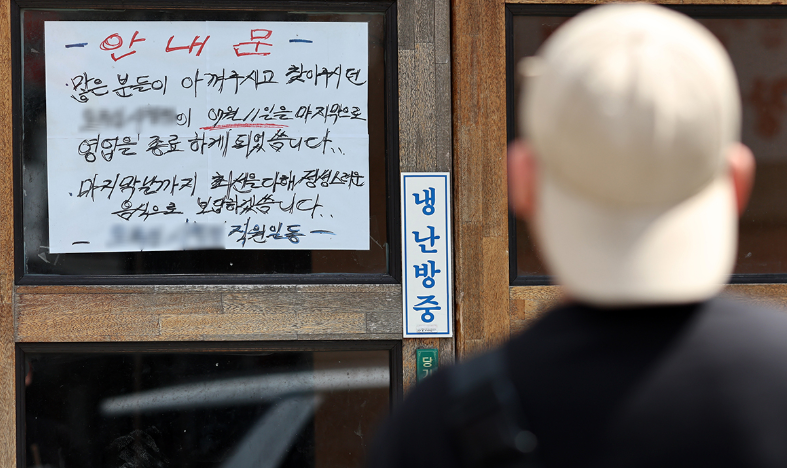 - 안 내 문 -
· 많은 분들이 아껴주시고 찾아주시던
의 9월 11일을 마지막으로
영업을 종료하게 되었씁니다..
· 마지막날까지 최선을다해 정성스러운
음식으로 보답하겠씁니다..
- 직원일동 -
냉난방중
당기